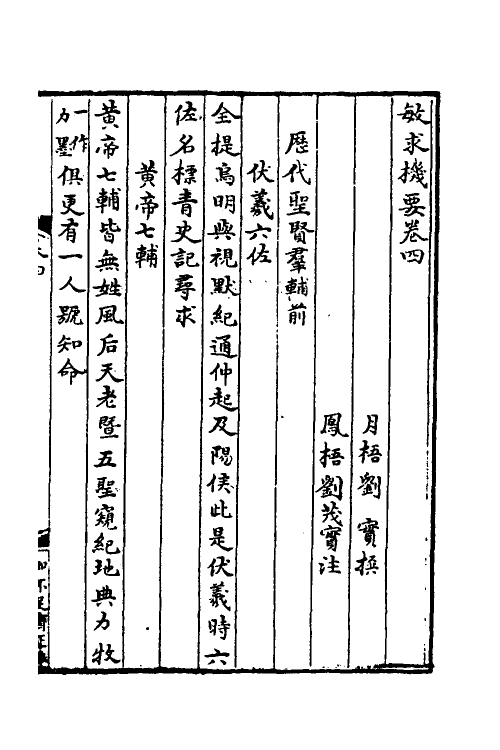 敏求機要卷四
月梧劉實撰
鳳梧劉茂實注
歷代聖賢羣輔前
伏羲六佐
全提鳥明與視默紀通仲起及陽侯此是伏羲時六
佐名標青史記尋求
黄帝七輔
黄帝七輔皆無姓風后天老暨五聖窺紀地典力牧
一作力墨俱更有一人號知命